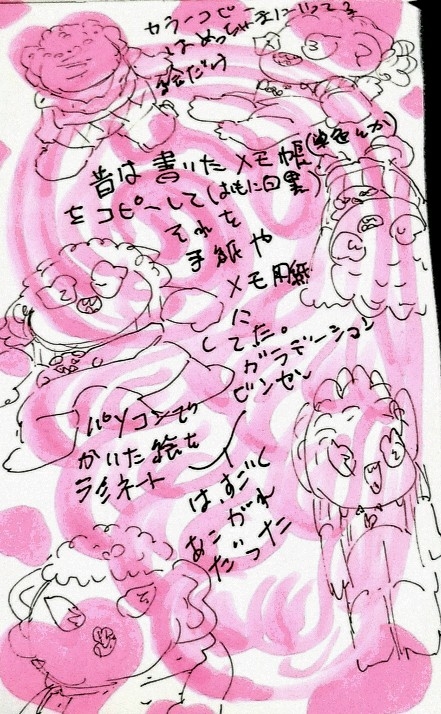 カラーコピー
はめっちゃ気に入ってる
絵だけ
昔は書いたメモ帳(単色とか)
をコピーして(おもに白黒)
それを
手紙や
メモ用紙
に
してた。
ガラデーション
ビンセン
パソコンで
かいた絵を
ラミネート
は、すごく
あこがれ
だった